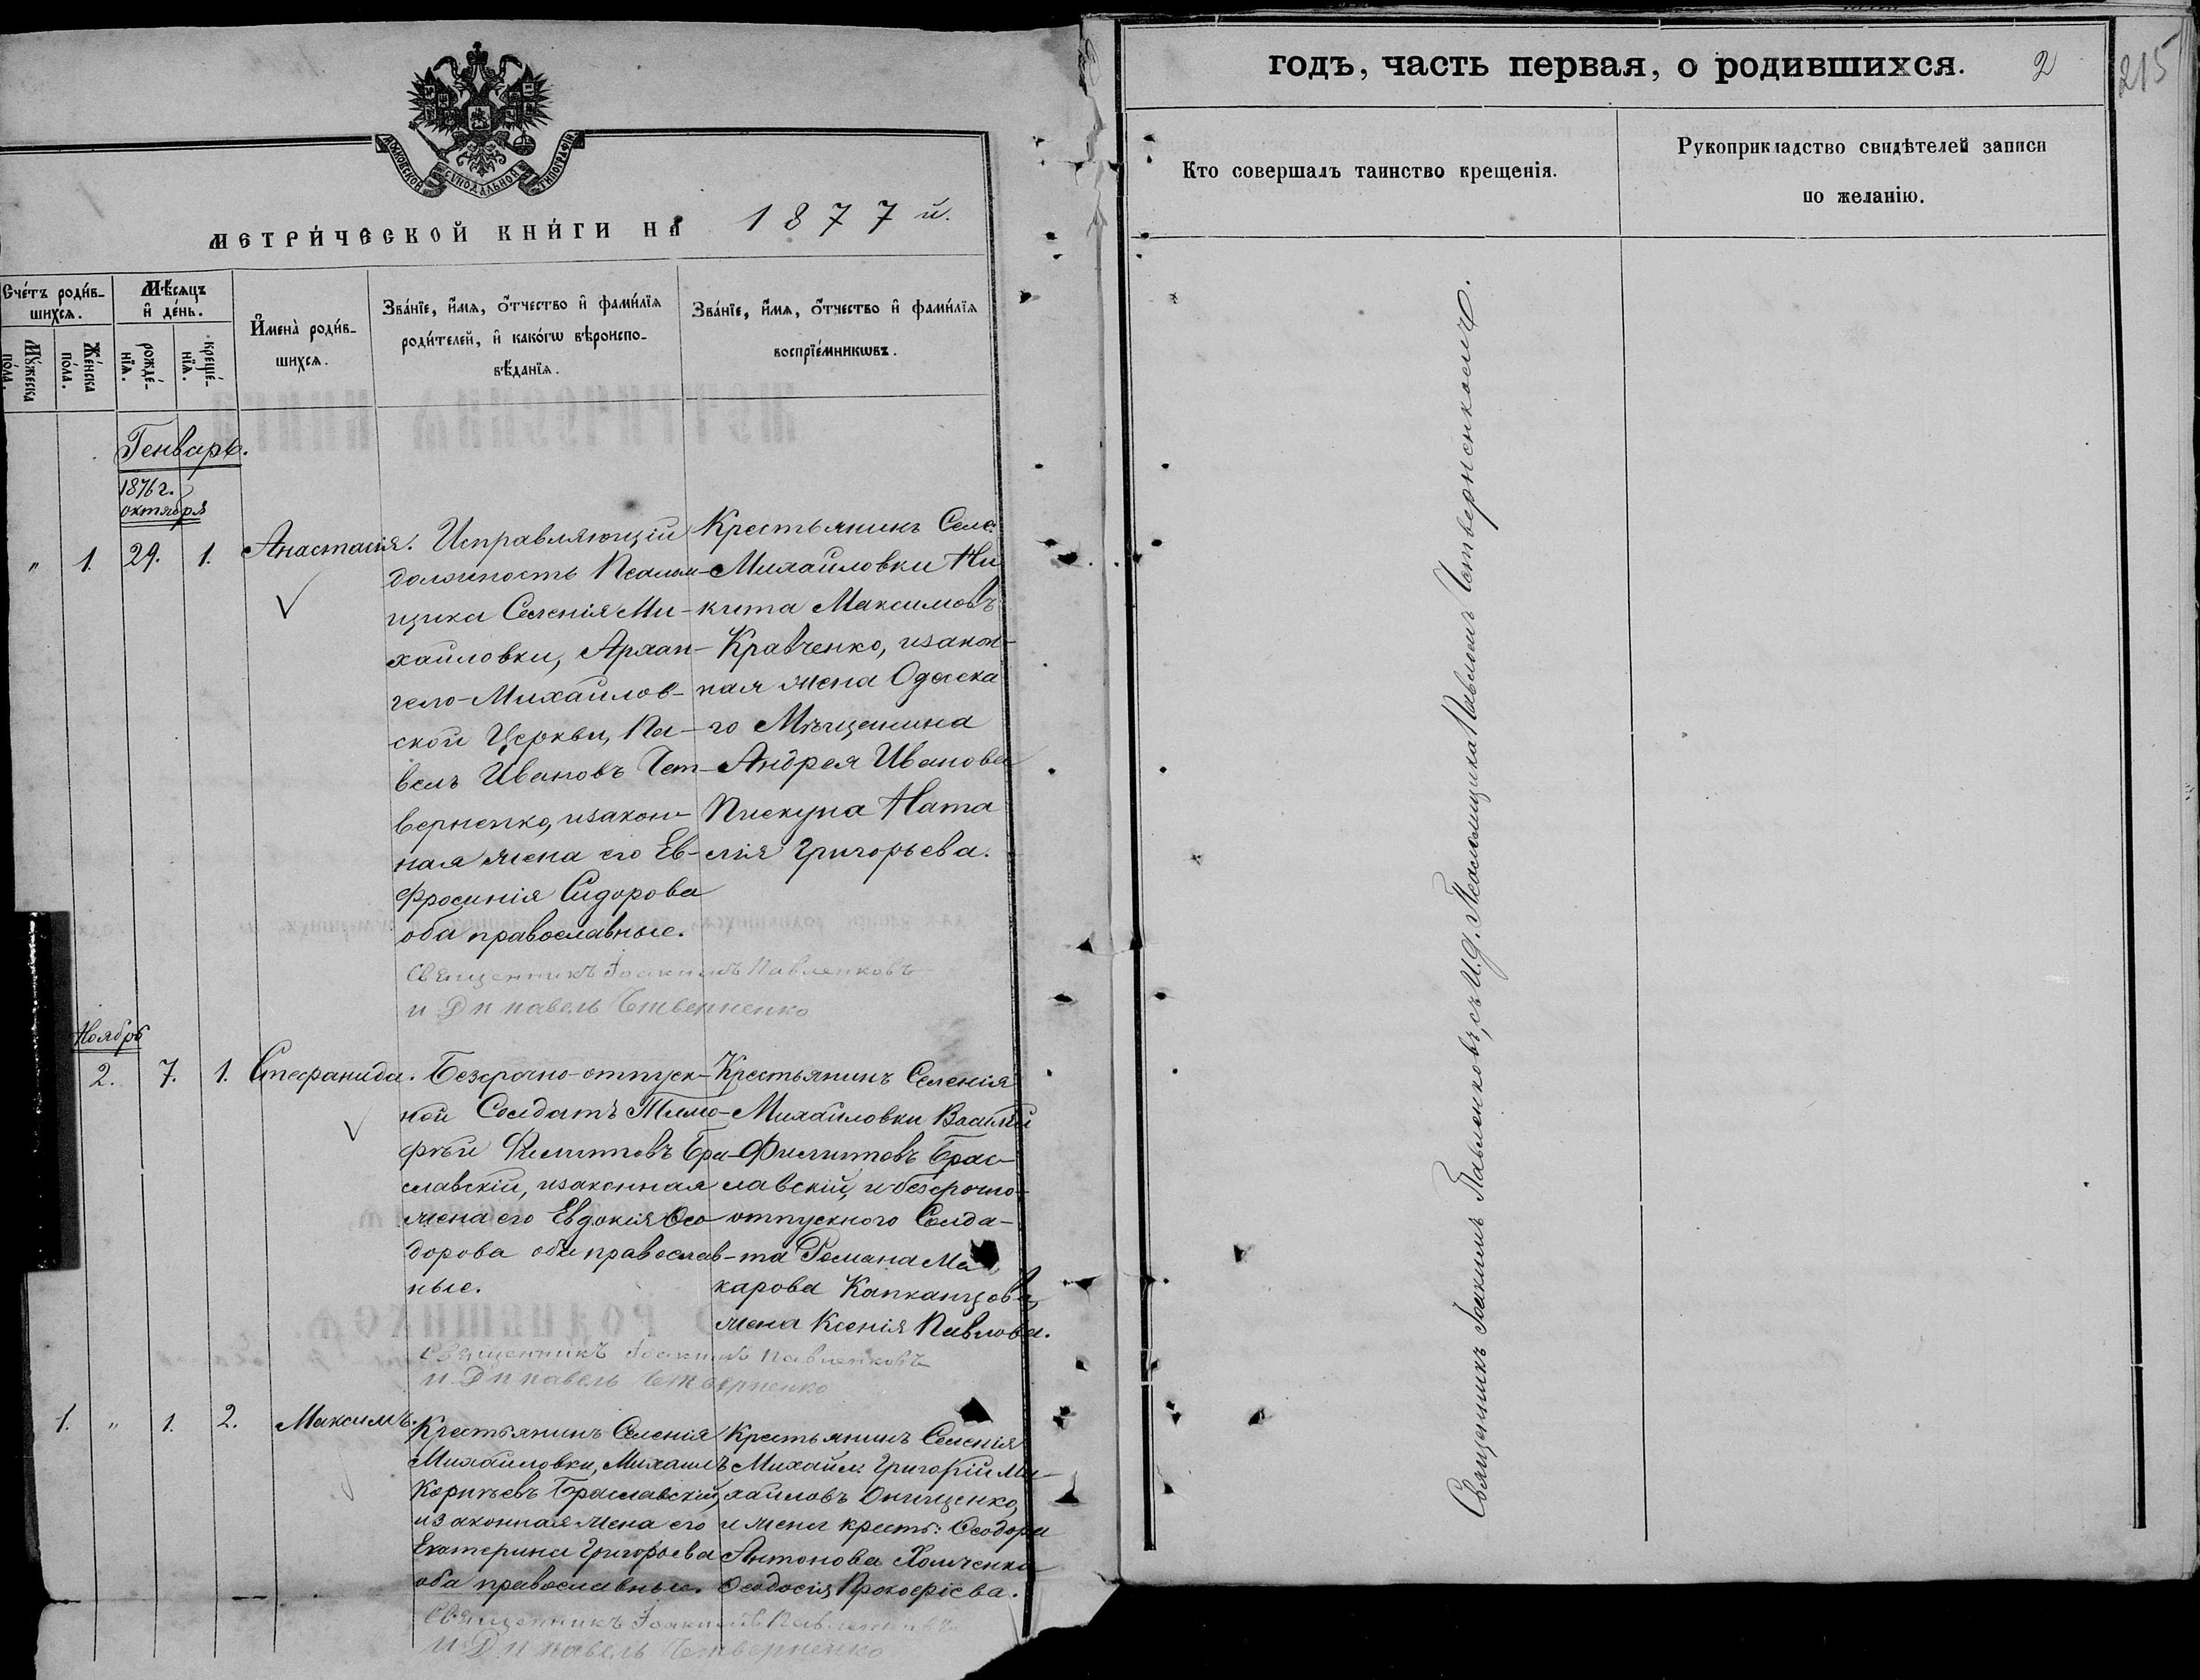 МОСКОВСКОЙ СѴНОДАЛЬНОЙ ТИПОГРАФІИ.
МЕТРИ́ЧЕСКОЙ КНИ́ГИ НА 1877 й.
Сче́тъ роди́в-
шихсѧ.
Мѣ́сѧцъ
и҆ де́нь.
Мꙋ́жеска
по́ла.
Же́нска
по́ла.
рожде́-
нїѧ.
креще́-
нїѧ.
И҆мена̀ роди́в-
шихсѧ.
Зва́нїе, и҆́мѧ, о҆́тчество и҆ фами́лїѧ
роди́телей, и҆ како́гѡ вѣроиспо-
вѣ́данїѧ.
Зва́нїе, и҆́мѧ, о҆́тчество и҆ фами́лїѧ
воспрїе́мникѡвъ.
Генварь.
1876 г.
октября
" 1. 29. 1. Анастасія.
Исправляющій
должность Псалом-
щика Селенія Ми-
хайловки, Архан-
гело-Михайлов-
ской Церкви, Па-
велъ Ивановъ Чет-
верненко, изакон-
ная жена его Ев-
фросинія Сидорова
оба православные.
Крестьянинъ Селе.
Михайловки Ни
кита Максимовъ
Кравченко, изакон-
ная жена Одеска
го Мѣщанина
Андрея Иванова
Пискуна Ната
лія Григорьева.
Священникъ Іоакимъ Павленковъ
и Д п павелъ Четверненко
Ноябрь
2. 7. 1. Стефанида.
Безсрочно-отпуск-
ной Солдатъ Тимо-
фѣй Филиповъ Бра-
славскій, изаконная
жена его Евдокія Ѳео
дорова оба православ-
ные.
Крестьянинъ Селенія
Михайловки Василій
Филиповъ Брас-
лавскій, и безсрочно-
отпускного Солда-
та Романа Ма
карова Капканцова,
жена Ксенія Павлова.
Священникъ Іоакимъ Павленковъ
и Д п павелъ Четверненко
1. " 1. 2. Максимъ.
Крестьянинъ Селенія
Михайловки, Михаилъ
Корнѣевъ Браславскій,
изаконная жена его
Екатерина Григорьева
оба православные.
Крестьянинъ Селенія
Михайл: Григорій Ми-
хайловъ Онищенко,
и жена крест: Ѳеодора
Антонова Хомченка
Ѳеодосія Прокофіева.
Священникъ Іоакимъ Павленковъ
и Д п павелъ Четверненко
годъ, часть первая, о родившихся. 2
215
Кто совершалъ таинство крещенія.
Рукоприкладство свидѣтелей записи
по желанію.
Священникъ Іоакимъ Павленковъ, съ И.д. Псаломщика Павломъ Четверненкомъ.